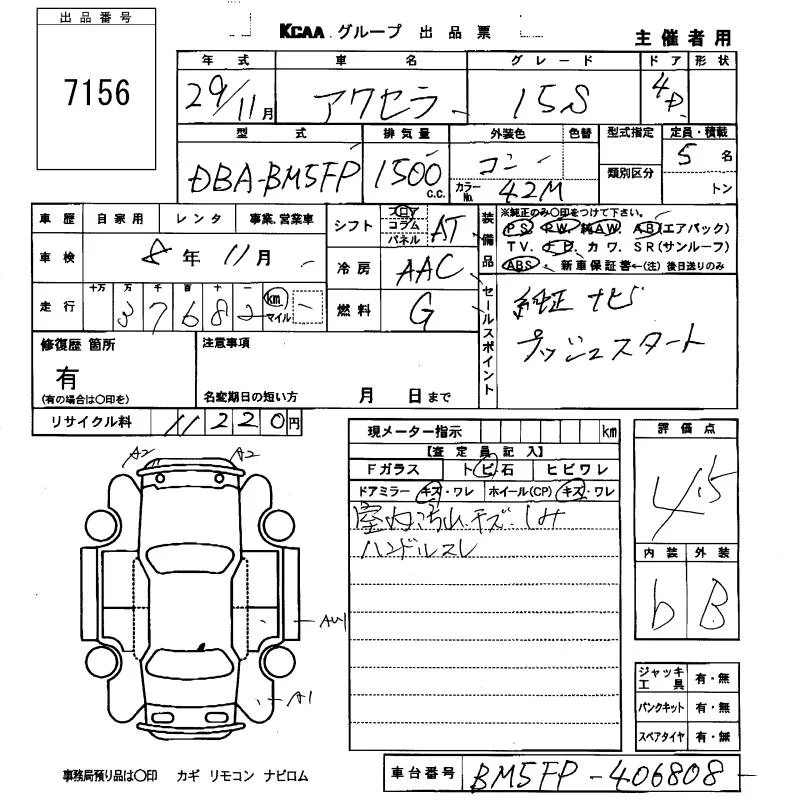 出品番号
7156
KCAA グループ 出品票
主催者用
年式 車名 グレード ドア 形状
29/11月 アクセラ 15S 4D
型式 排気量 外装色 色替 型式指定 定員・積載
DBA-BM5FP 1500 c.c. コン 5名
カラーNo. 42M 類別区分 トン
車歴 自家用 レンタ 事業.営業車
車検 8年11月
走行 十万 万 千 百 十 一
37682 km マイル
シフト フロア コラム パネル AT
冷房 AAC
燃料 G
装備品
※純正のみ〇印をつけて下さい。
PS PW 純AW AB(エアバック)
TV. カワ. SR(サンルーフ)
ABS 新車保証書←(注) 後日送りのみ
セールスポイント
純正ナビ
プッシュスタート
修復歴 箇所
有
(有の場合は〇印を)
注意事項
名変期日の短い方 月 日まで
リサイクル料 11220円
A2 A2
AU1
A1
現メーター指示 km
【査定員記入】
Fガラス トビ石 ヒビワレ
ドアミラー キズ・ワレ ホイール(CP) キズ・ワレ
室内汚れ.キズ.しみ
ハンドルスレ
評価点
4.5
内装 外装
b B
ジャッキ工具 有・無
パンクキット 有・無
スペアタイヤ 有・無
事務局預り品は〇印 カギ リモコン ナビロム
車台番号 BM5FP-406808